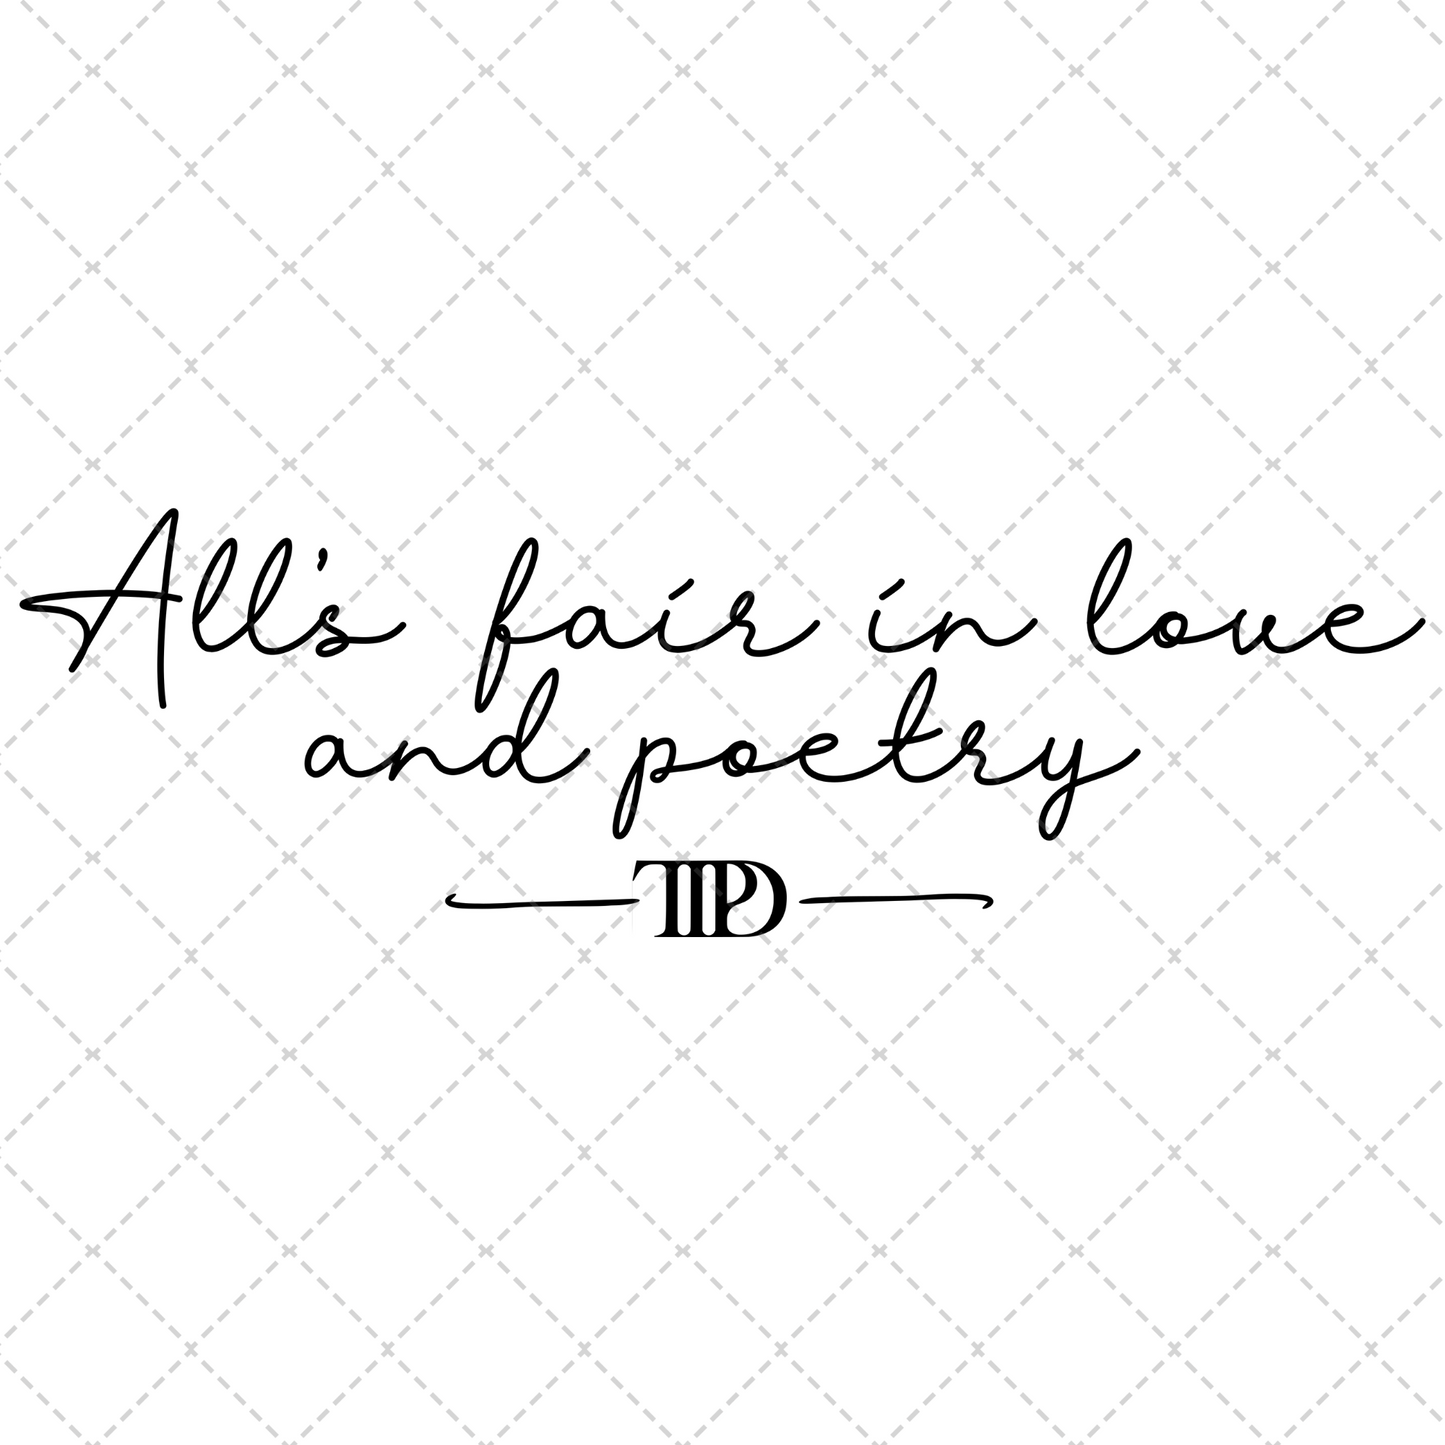 All's fair in love
and poetry
TTPD